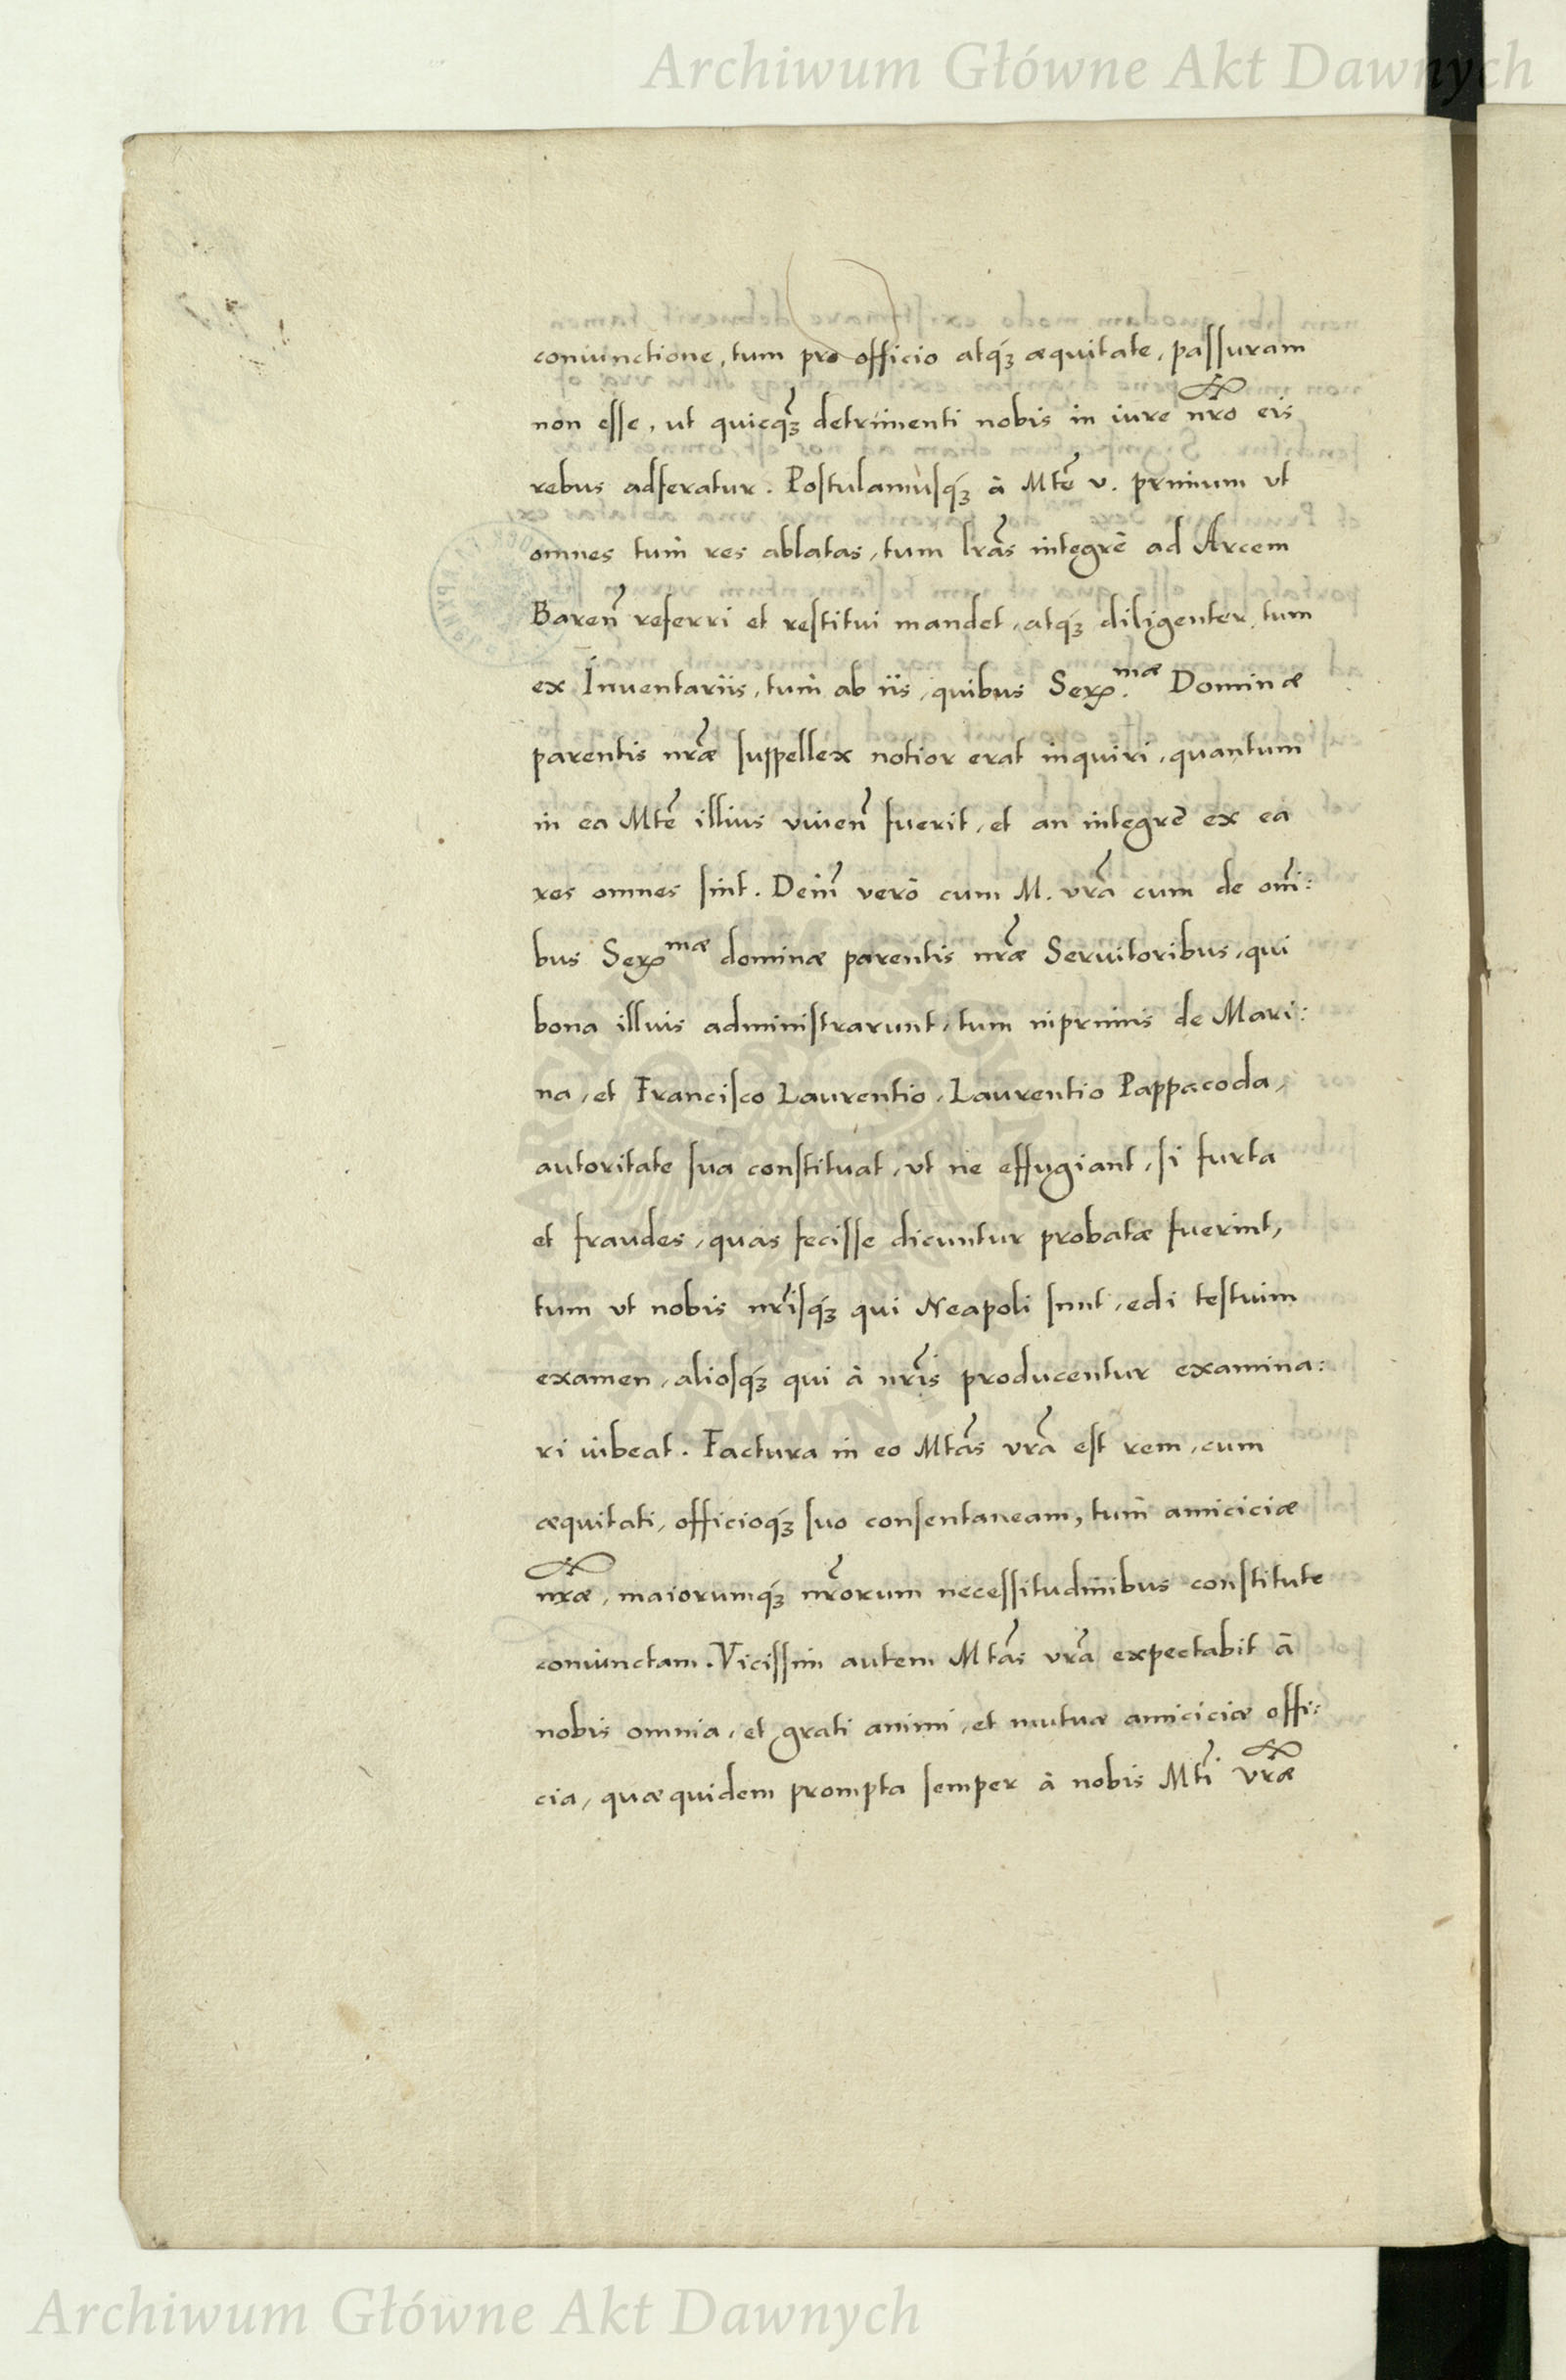 Archiwum Główne Akt Dawnych
coniunctione, tum pro officio atq́ꝫ æquitate, paſſuram
non eſſe, ut quicqꝫ̃ detrimenti nobis in iure nr̃o eis
rebus adferatur. Poſtulamuſq́ꝫ à Mtẽ v. primum vt
omnes tum res ablatas, tum lr̃as integrè ad Arcem
Bareñ referri et reſtitui mandet, atq́ꝫ diligenter, tum
ex Inventariis, tum ab iis, quibus Ser.mæ Dominæ
parentis nr̃æ ſuppellex notior erat inquiri, quantum
in ea Mtẽ illius viveñ fuerit, et an integrè ex ea
res omnes ſint. Deiñ verò cum M. vr̃a cum de om̃i:
bus Sermæ dominæ parentis nr̃æ Servitoribus, qui
bona illius adminiſtrarunt, tum inprimis de Mari:
na, et Franciſco Laurentio, Laurentio Pappacoda,
autoritate ſua conſtituat, vt ne effugiant, ſi furta
et fraudes, quas feciſſe dicuntur probatæ fuerint,
tum vt nobis nr̃iſq́ꝫ qui Neapoli ſunt, edi teſtium
examen, alioſq́ꝫ qui à nr̃is producentur examina:
ri iubeat. Factura in eo Mtãs vr̃a eſt rem, cum
æquitati, officioq́ꝫ ſuo conſentaneam, tum amiciciæ
nr̃æ, maiorumq́ꝫ nr̃orum neceſſitudinibus conſtitute
coniunctam. Viciſſim autem Mtãs vr̃a expectabit à
nobis omnia, et grati animi, et mutuæ amiciciæ offi:
cia, quæ quidem prompta ſemper à nobis Mtĩ vr̃æ
Archiwum Główne Akt Dawnych